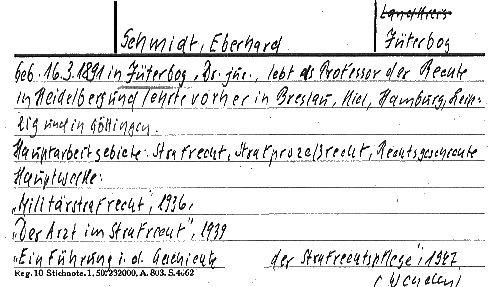 Landkreis
Schmidt, Eberhard
Jüterbog
Geb. 16.3.1891 in Jüterbog, Dr. jur., lebt als Professor der Rechte
in Heidelberg und lehrte vorher in Breslau, Kiel, Hamburg, Leip-
zig und in Göttingen.
Hauptarbeitgebiete: Strafrecht, Strafprozeßrecht, Rechtsgeschichte
Hauptwerke:
„Militärstrafrecht", 1936,
„Der Arzt im Strafrecht", 1939
„Einführung i. d. Geschichte der Strafrechtspflege", 1947
Reg. 10 Stichnote. 1, 50. 232000, A. 803. 5. 4062